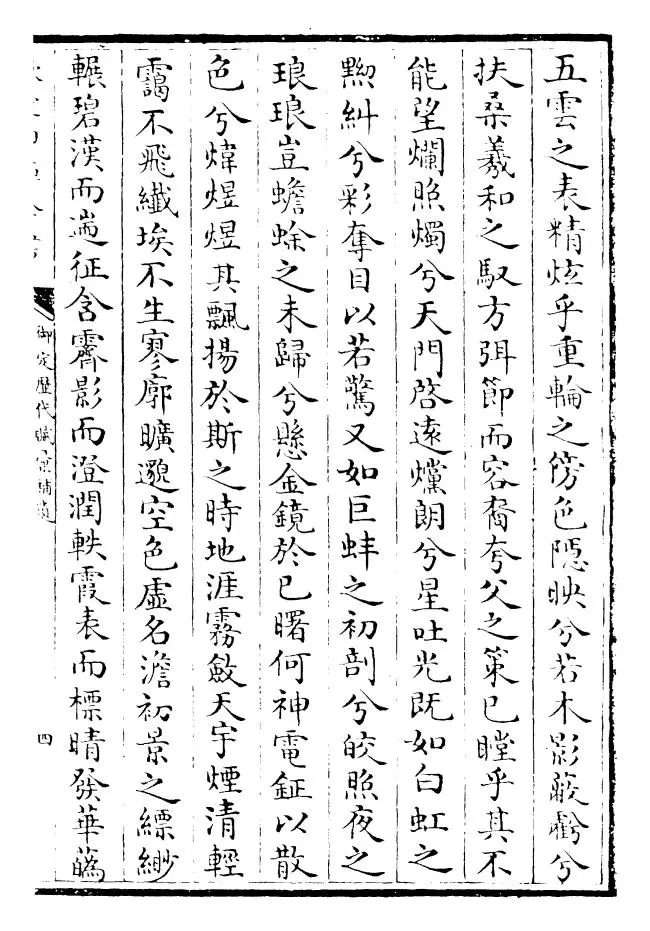 五雲之表精炫乎重輪之傍色隱映兮若木影蔽虧兮
扶桑羲和之馭方弭節而容裔夸父之策已瞠乎其不
能望爛照燭兮天門啓遠爣朗兮星吐光既如白虹之
黝糾兮彩奪目以若驚又如巨蚌之初剖兮皎照夜之
琅琅豈蟾蜍之未歸兮懸金鏡於已曙何神電鉦以散
色兮煒煜煜其飄揚於斯之時地涯霧斂天宇煙清輕
靄不飛纎埃不生寥廓曠邈空色虛名澹初景之縹緲
輾碧漢而遄征含霽影而澄潤軼霞表而標晴發華蘤
御定歷代賦彙補遺
四